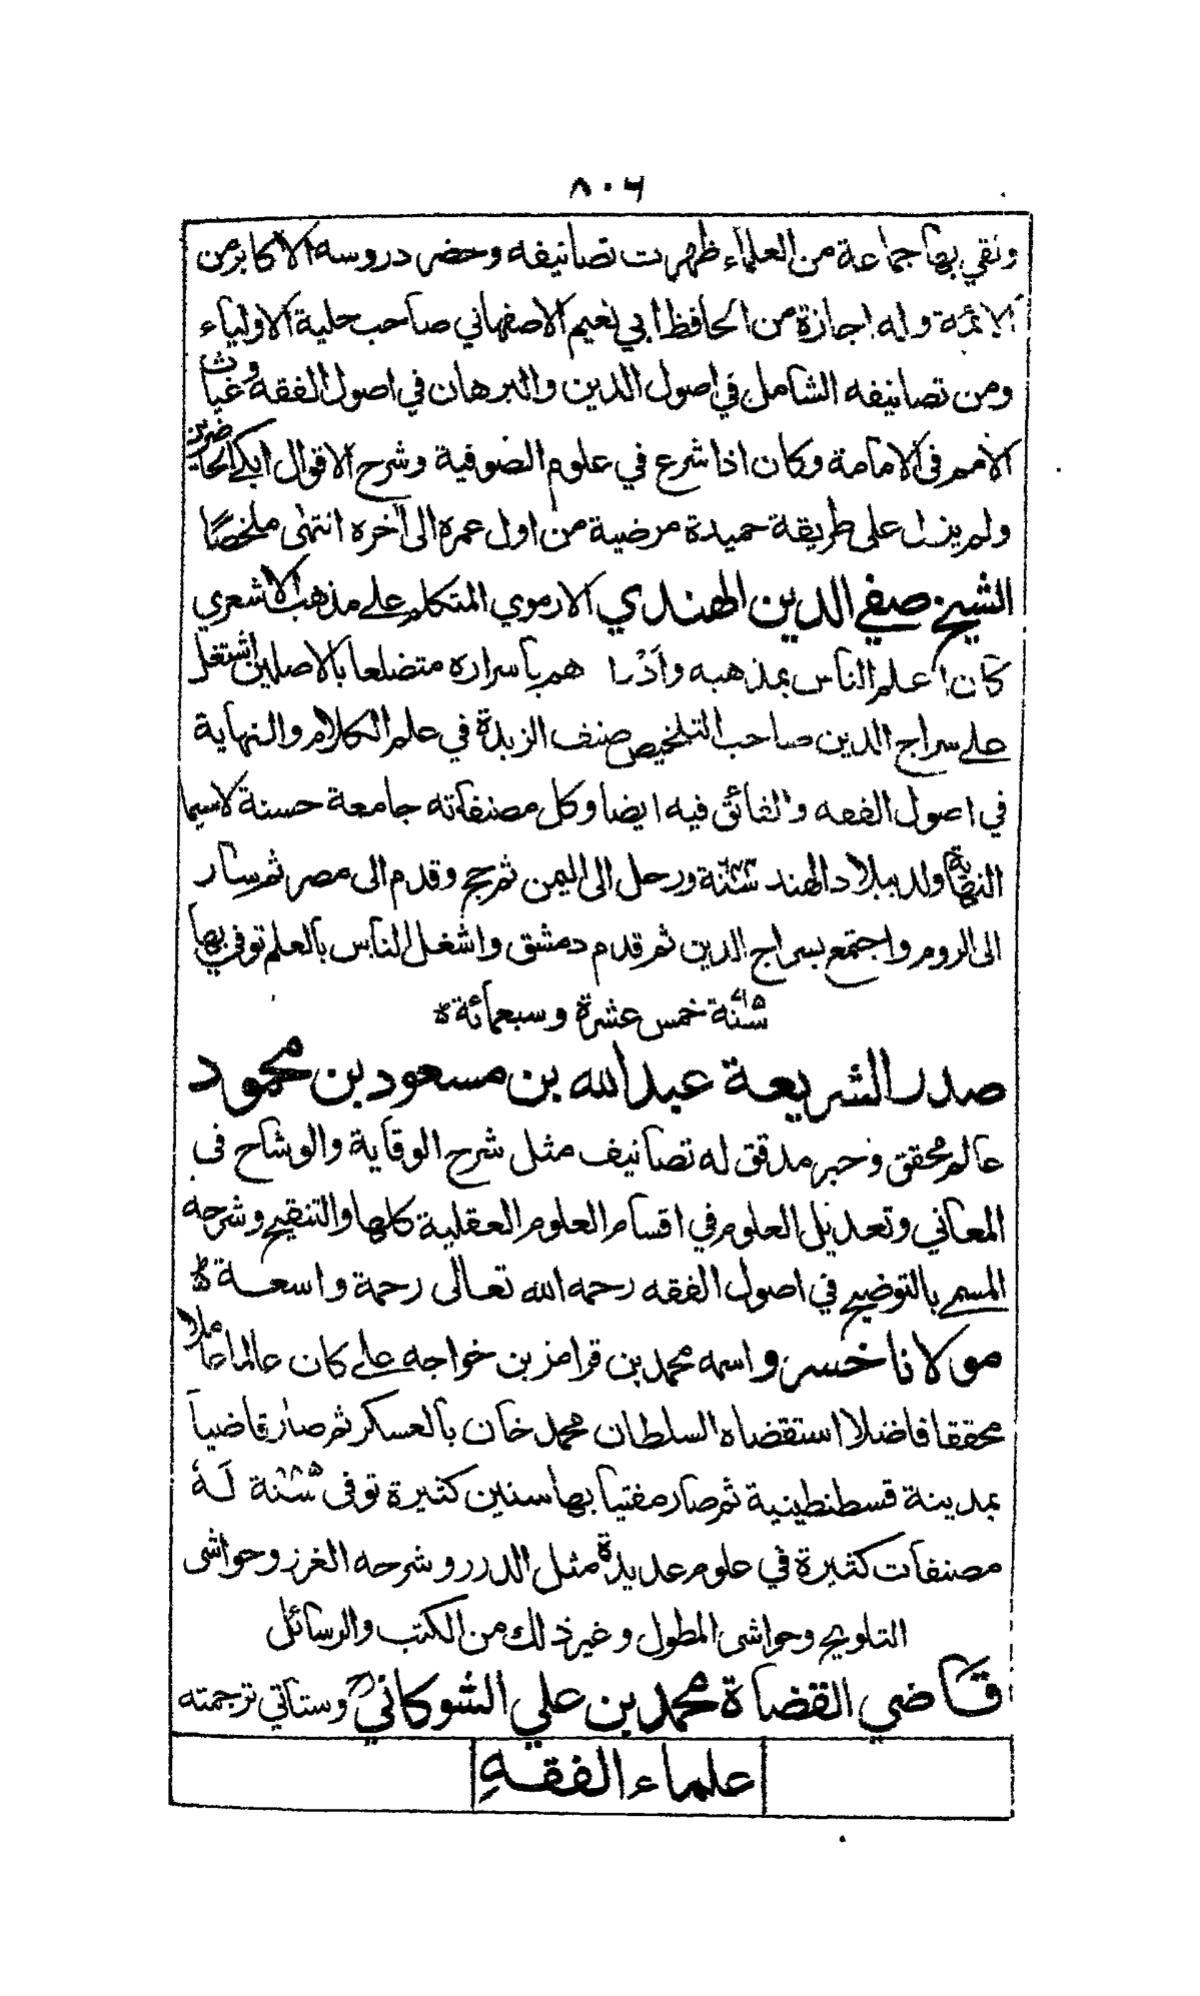 ٨٠٦
ولقي بها جماعة من العلماء ظهرت تصانيفه وحضر دروسه الاكابر من
الائمة وله اجازة من الحافظ ابي نعيم الاصفهاني صاحب حلية الاولياء
ومن تصانيفه الشامل في اصول الدين والبرهان في اصول الفقه وغياث
الامم في الامامة وكان اذا شرع في علوم الصوفية وشرح الاقوال ابكى الحاضرين
ولم يزل على طريقة حميدة مرضية من اول عمره الى آخره انتهى ملخصًا
الشيخ صفي الدين الهندي الارموي المتكلم على مذهب الاشعري
كان اعلم الناس بمذهبه وادراهم باسراره متضلعا بالاصلين اشتغل
على سراج الدين صاحب التلخيص صنف الزبدة في علم الكلام والنهاية
في اصول الفقه والفائق فيه ايضا وكل مصنفاته جامعة حسنة لاسيما
النهاية ولد ببلاد الهند سنة ورحل الى اليمن ثم حج وقدم الى مصر ثم سار
الى الروم واجتمع بسراج الدين ثم قدم دمشق واشغل الناس بالعلم توفي بها
سنة خمس عشرة وسبعمائة
صدر الشريعة عبد الله بن مسعود بن محمود
عالم محقق وحبر مدقق له تصانيف مثل شرح الوقاية والوشاح في
المعاني وتعديل العلوم في اقسام العلوم العقلية كلها والتنقيح وشرحه
المسمى بالتوضيح في اصول الفقه رحمه الله تعالى رحمة واسعة
مولانا خسرو واسمه محمد بن قرامز بن خواجه على كان عالما عاملا
محققا فاضلا استقضاه السلطان محمد خان بالعسكر ثم صار قاضياً
بمدينة قسطنطينية ثم صار مفتيا بها سنين كثيرة توفى سنة لهُ
مصنفات كثيرة في علوم عديدة مثل الدرر وشرحه الغرر وحواشى
التلويح وحواشى المطول وغير ذلك من الكتب والرسائل
قاضي القضاة محمد بن علي الشوكاني وستاتي ترجمته
علماء الفقهِ